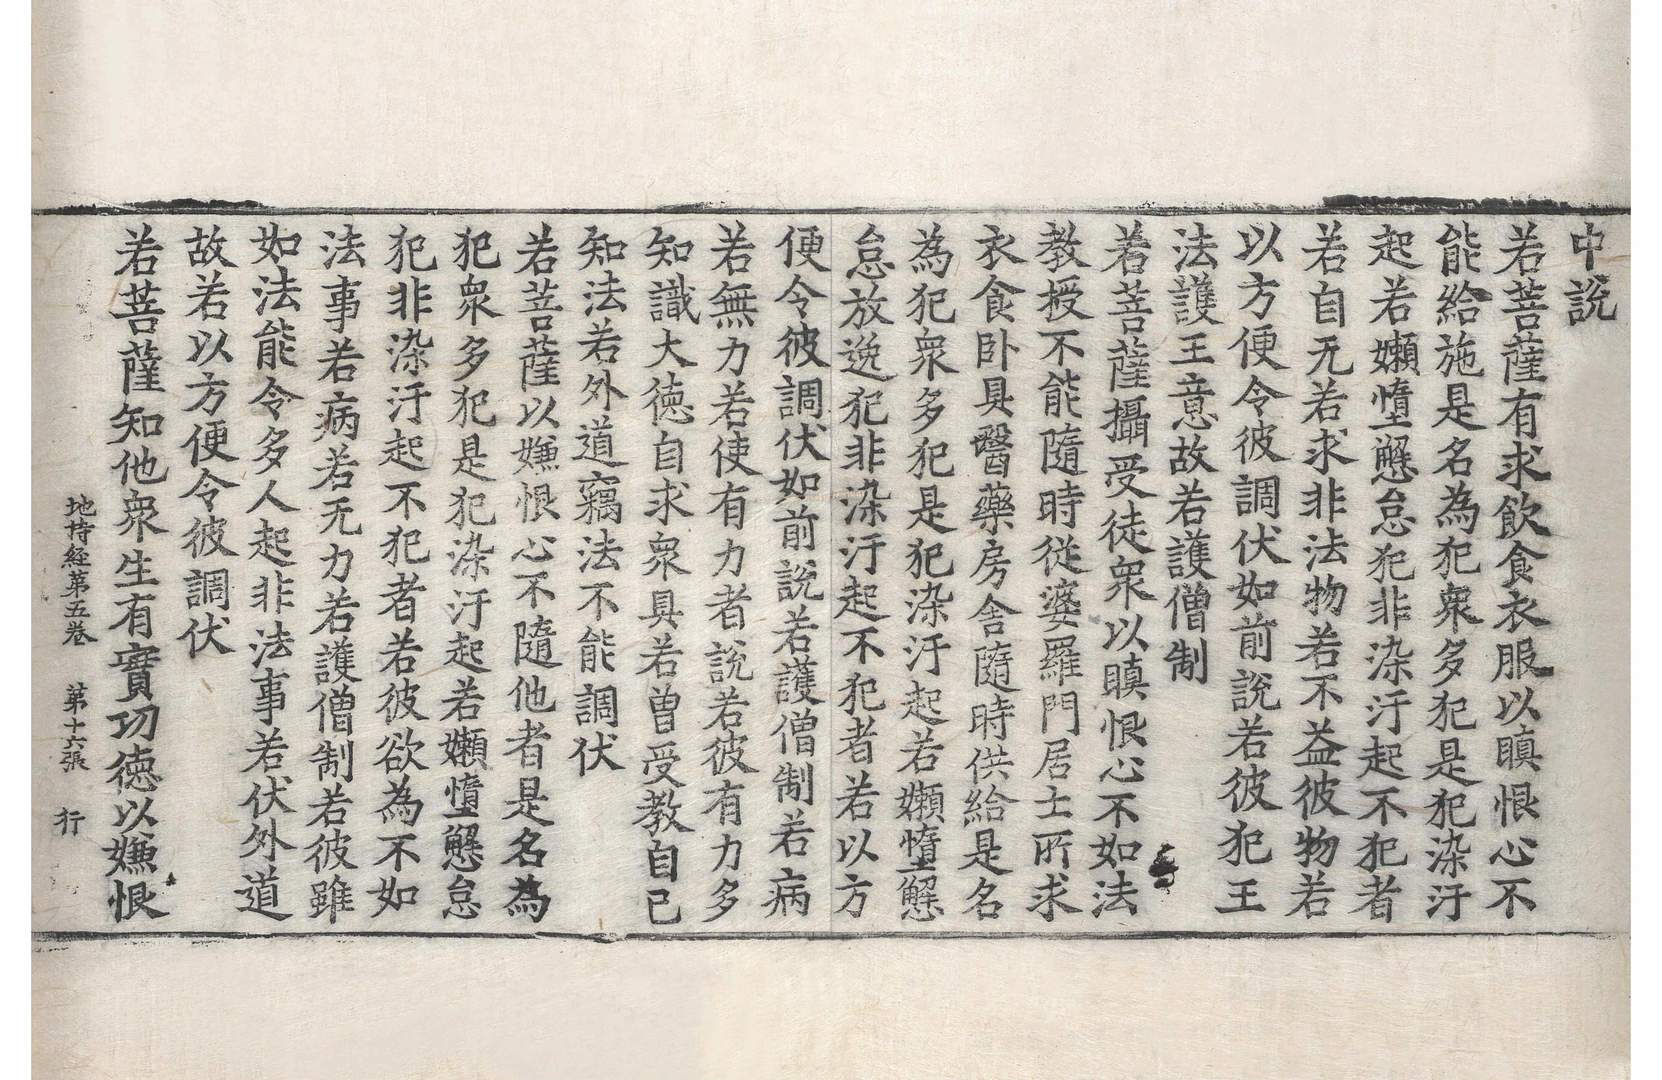 中說
若菩薩有求飲食衣服以瞋恨心不
能給施是名為犯衆多犯是犯染汙
起若嬾惰懈怠犯非染汙起不犯者
若自无若求非法物若不益彼物若
以方便令彼調伏如前說若彼犯王
法護王意故若護僧制
若菩薩攝受徒衆以瞋恨心不如法
教授不能隨時從婆羅門居士所求
衣食卧具醫藥房舍隨時供給是名
為犯衆多犯是犯染汙起若嬾惰懈
怠放逸犯非染汙起不犯者若以方
便令彼調伏如前說若護僧制若病
若無力若使有力者說若彼有力多
知識大德自求衆具若曾受教自已
知法若外道竊法不能調伏
若菩薩以嫌恨心不隨他者是名為
犯衆多犯是犯染汙起若嬾惰懈怠
犯非染汙起不犯者若彼欲為不如
法事若病若无力若護僧制若彼雖
如法能令多人起非法事若伏外道
故若以方便令彼調伏
若菩薩知他衆生有實功德以嫌恨
地持經第五卷　第十六張　行